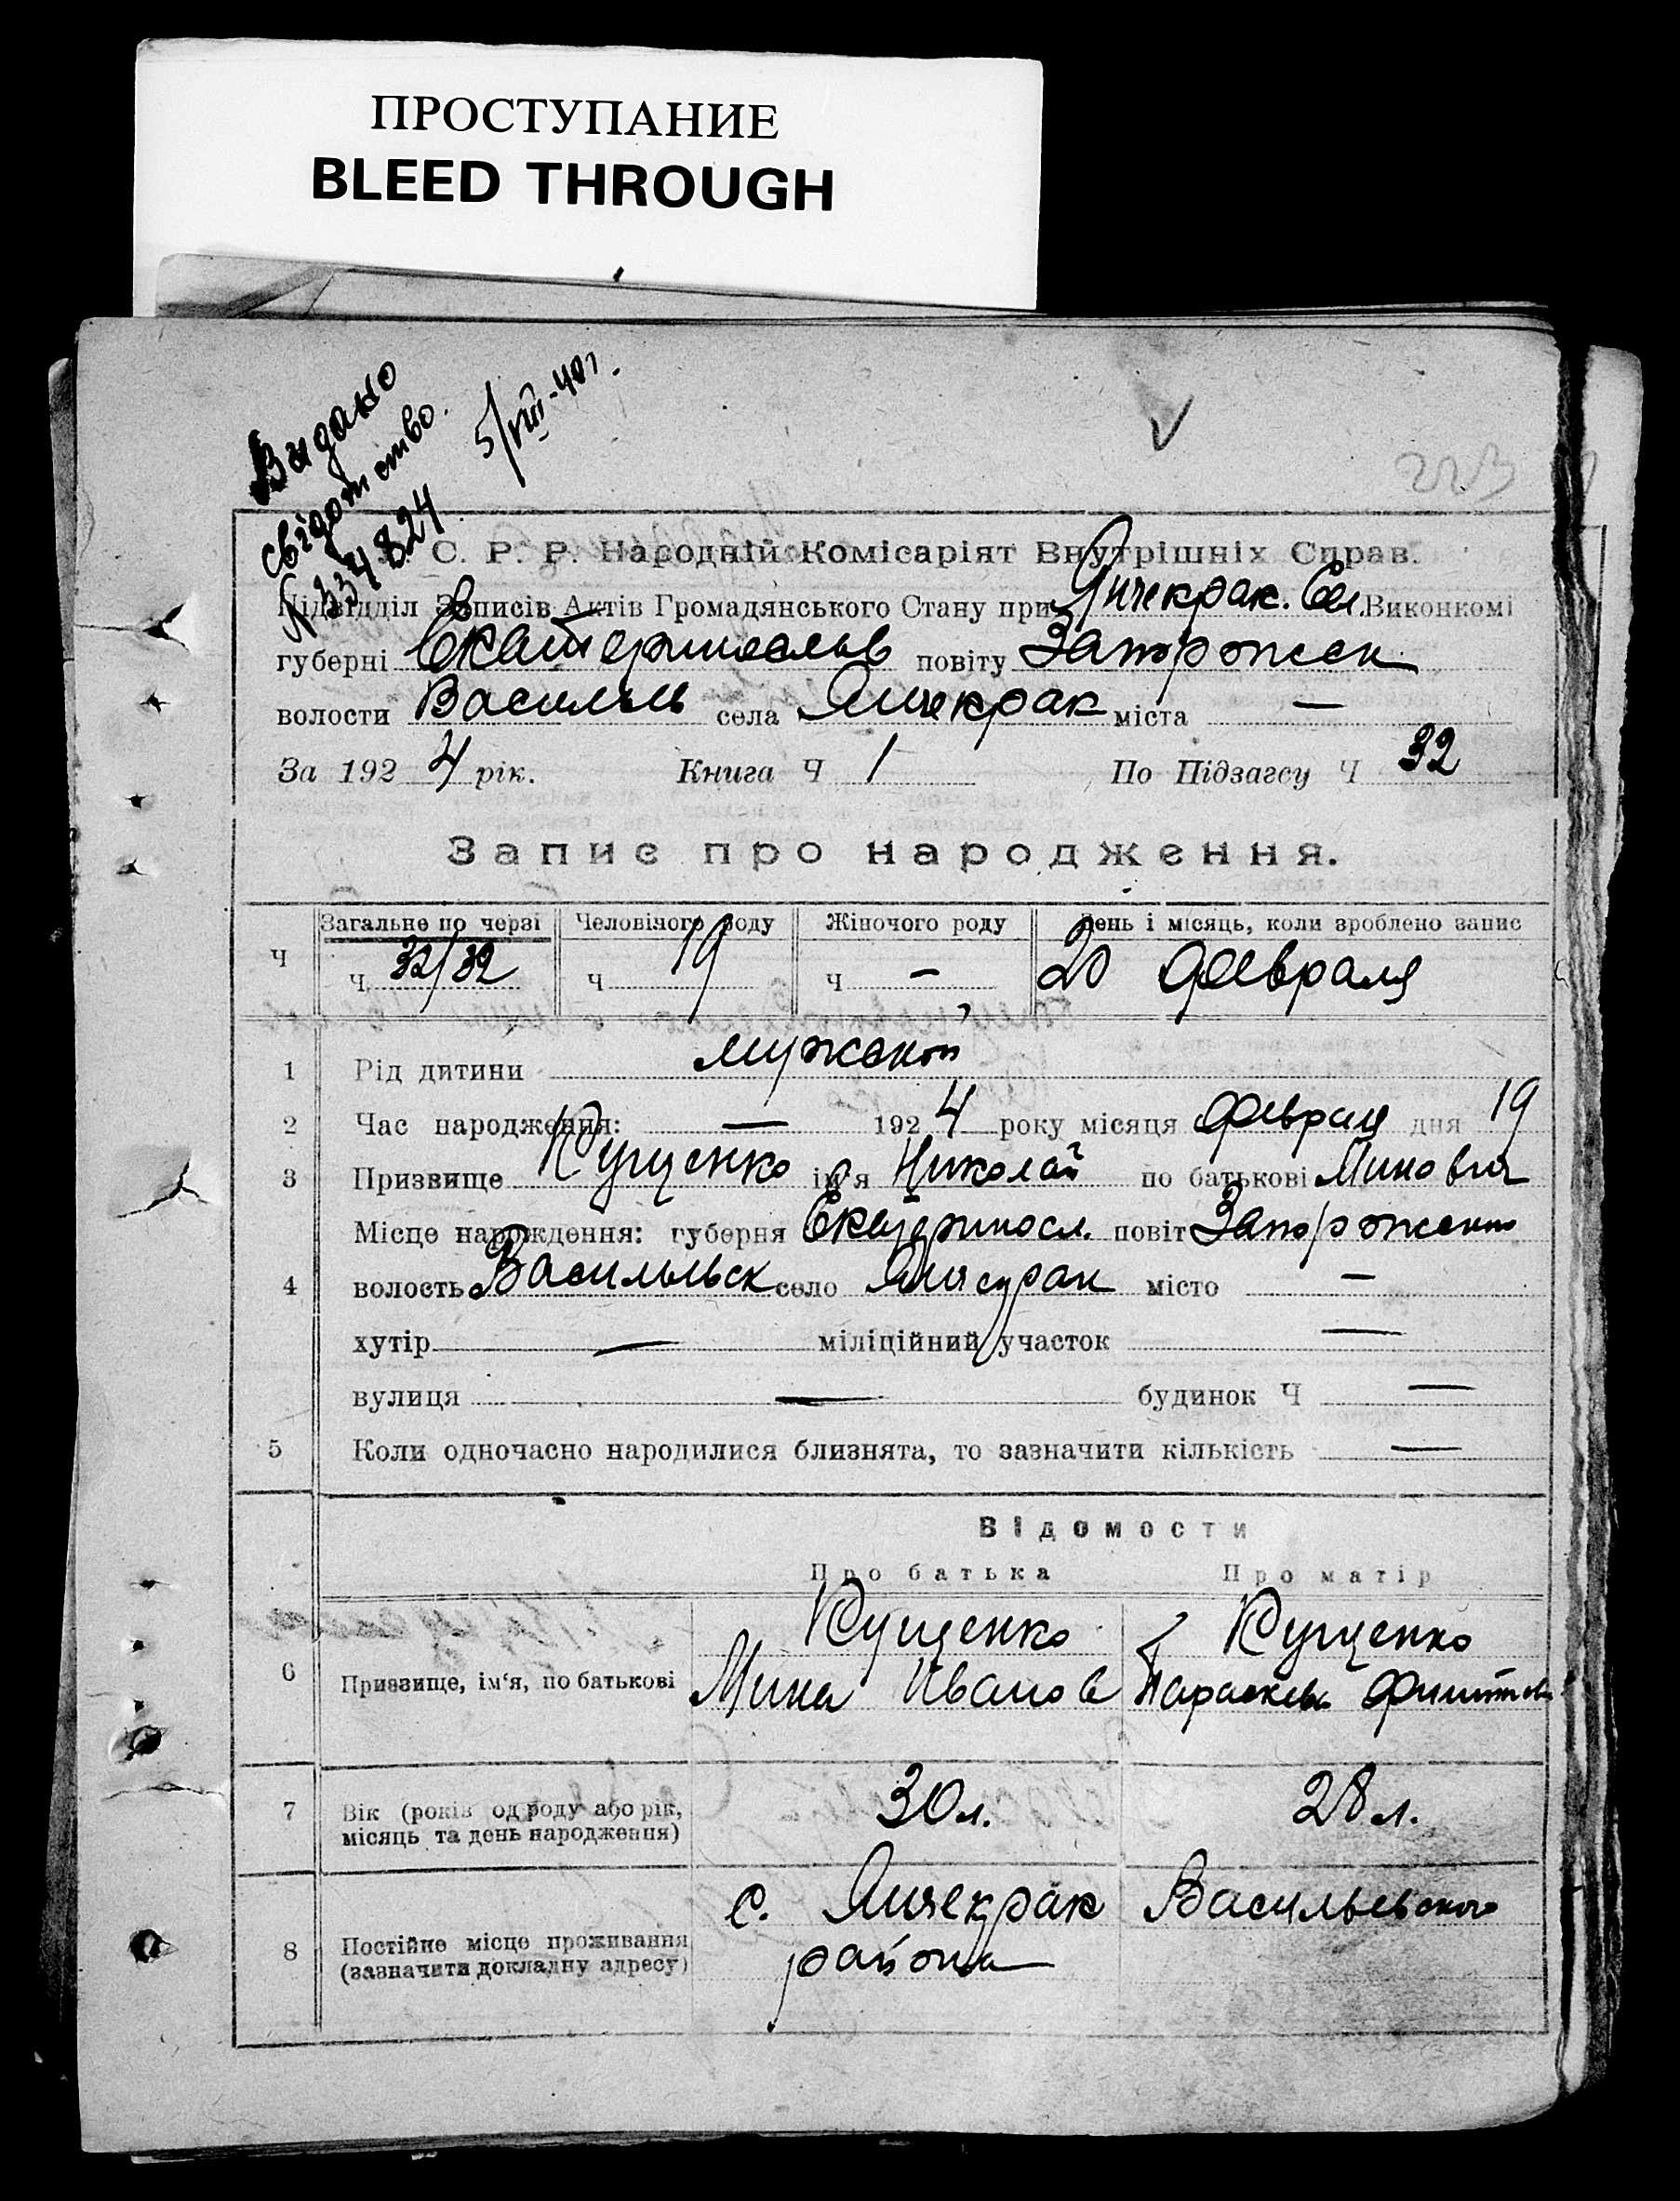 ПРОСТУПАНИЕ
BLEED THROUGH
Видано
свідотство.
5/VIII-40г.
№ 334824
223
С. Р. Р. Народній Комісаріят Внутрішніх Справ.
Підвідділ Записів Актів Громадянського Стану при Янчекрак. Сел. Виконкомі
губерні Екатеринославв повіту Запорожск
волости Василььь села Янчекрак міста —
За 192 4 рік. Книга Ч 1 По Підзагсу Ч 32
Запис про народження.
Загальне по черзі Человічого роду Жіночого роду День і місяць, коли зроблено запис
Ч Ч 32/32 Ч 19 Ч — 20 февраля
1 Рід дитини мужской
2 Час народження: — 192 4 року місяця февраля дня 19
3 Призвище Кущенко ім'я Николай по батькові Минович
Місце нарождення: губерня Екатеринosл. повіт Запорожский
4 волость Васильевск село Янчекрак місто —
хутір — міліційний участок —
вулиця — будинок Ч —
5 Коли одночасно народилися близнята, то зазначити кількість —
Відомости
Про батька Про матір
Кущенко Кущенко
6 Призвище, ім'я, по батькові Мина Иванов Параскева
7 Вік (років од роду або рік, місяць та день народження) 30 л. 28 л.
с. Янчекрак Васильевского
8 Постійне місце проживання (зазначити докладну адресу) района